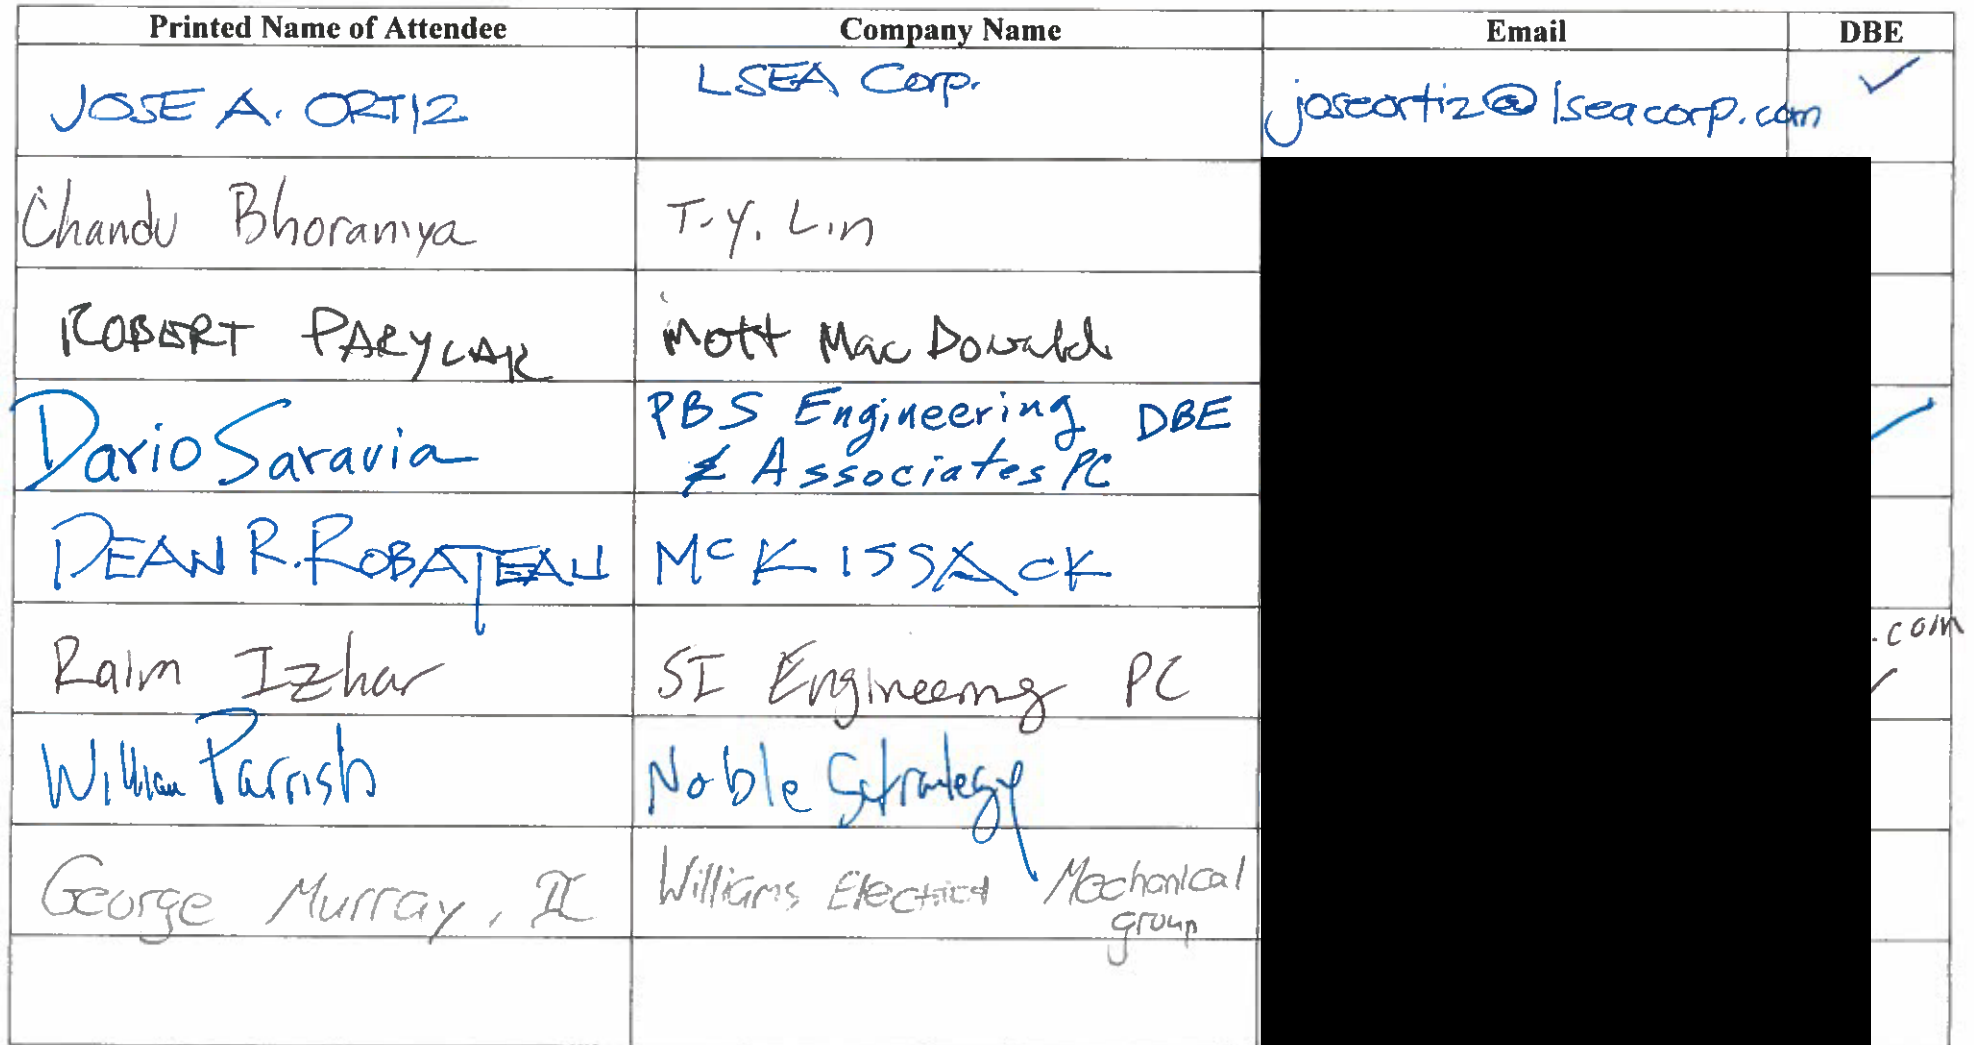 Printed Name of Attendee Company Name Email DBE
JOSE A. ORTIZ LSEA Corp. joseortiz@lseacorp.com ✓
Chandu Bhoraniya T.Y. Lin
ROBERT PARYLAK Mott MacDonald
Dario Saravia PBS Engineering DBE
& Associates PC
DEAN R. ROBATEAU McKISSACK
.com
Izhar SI Engineering PC ✓
William Parrish Noble Strategy
George Murray, II Williams Electrical Mechanical
group